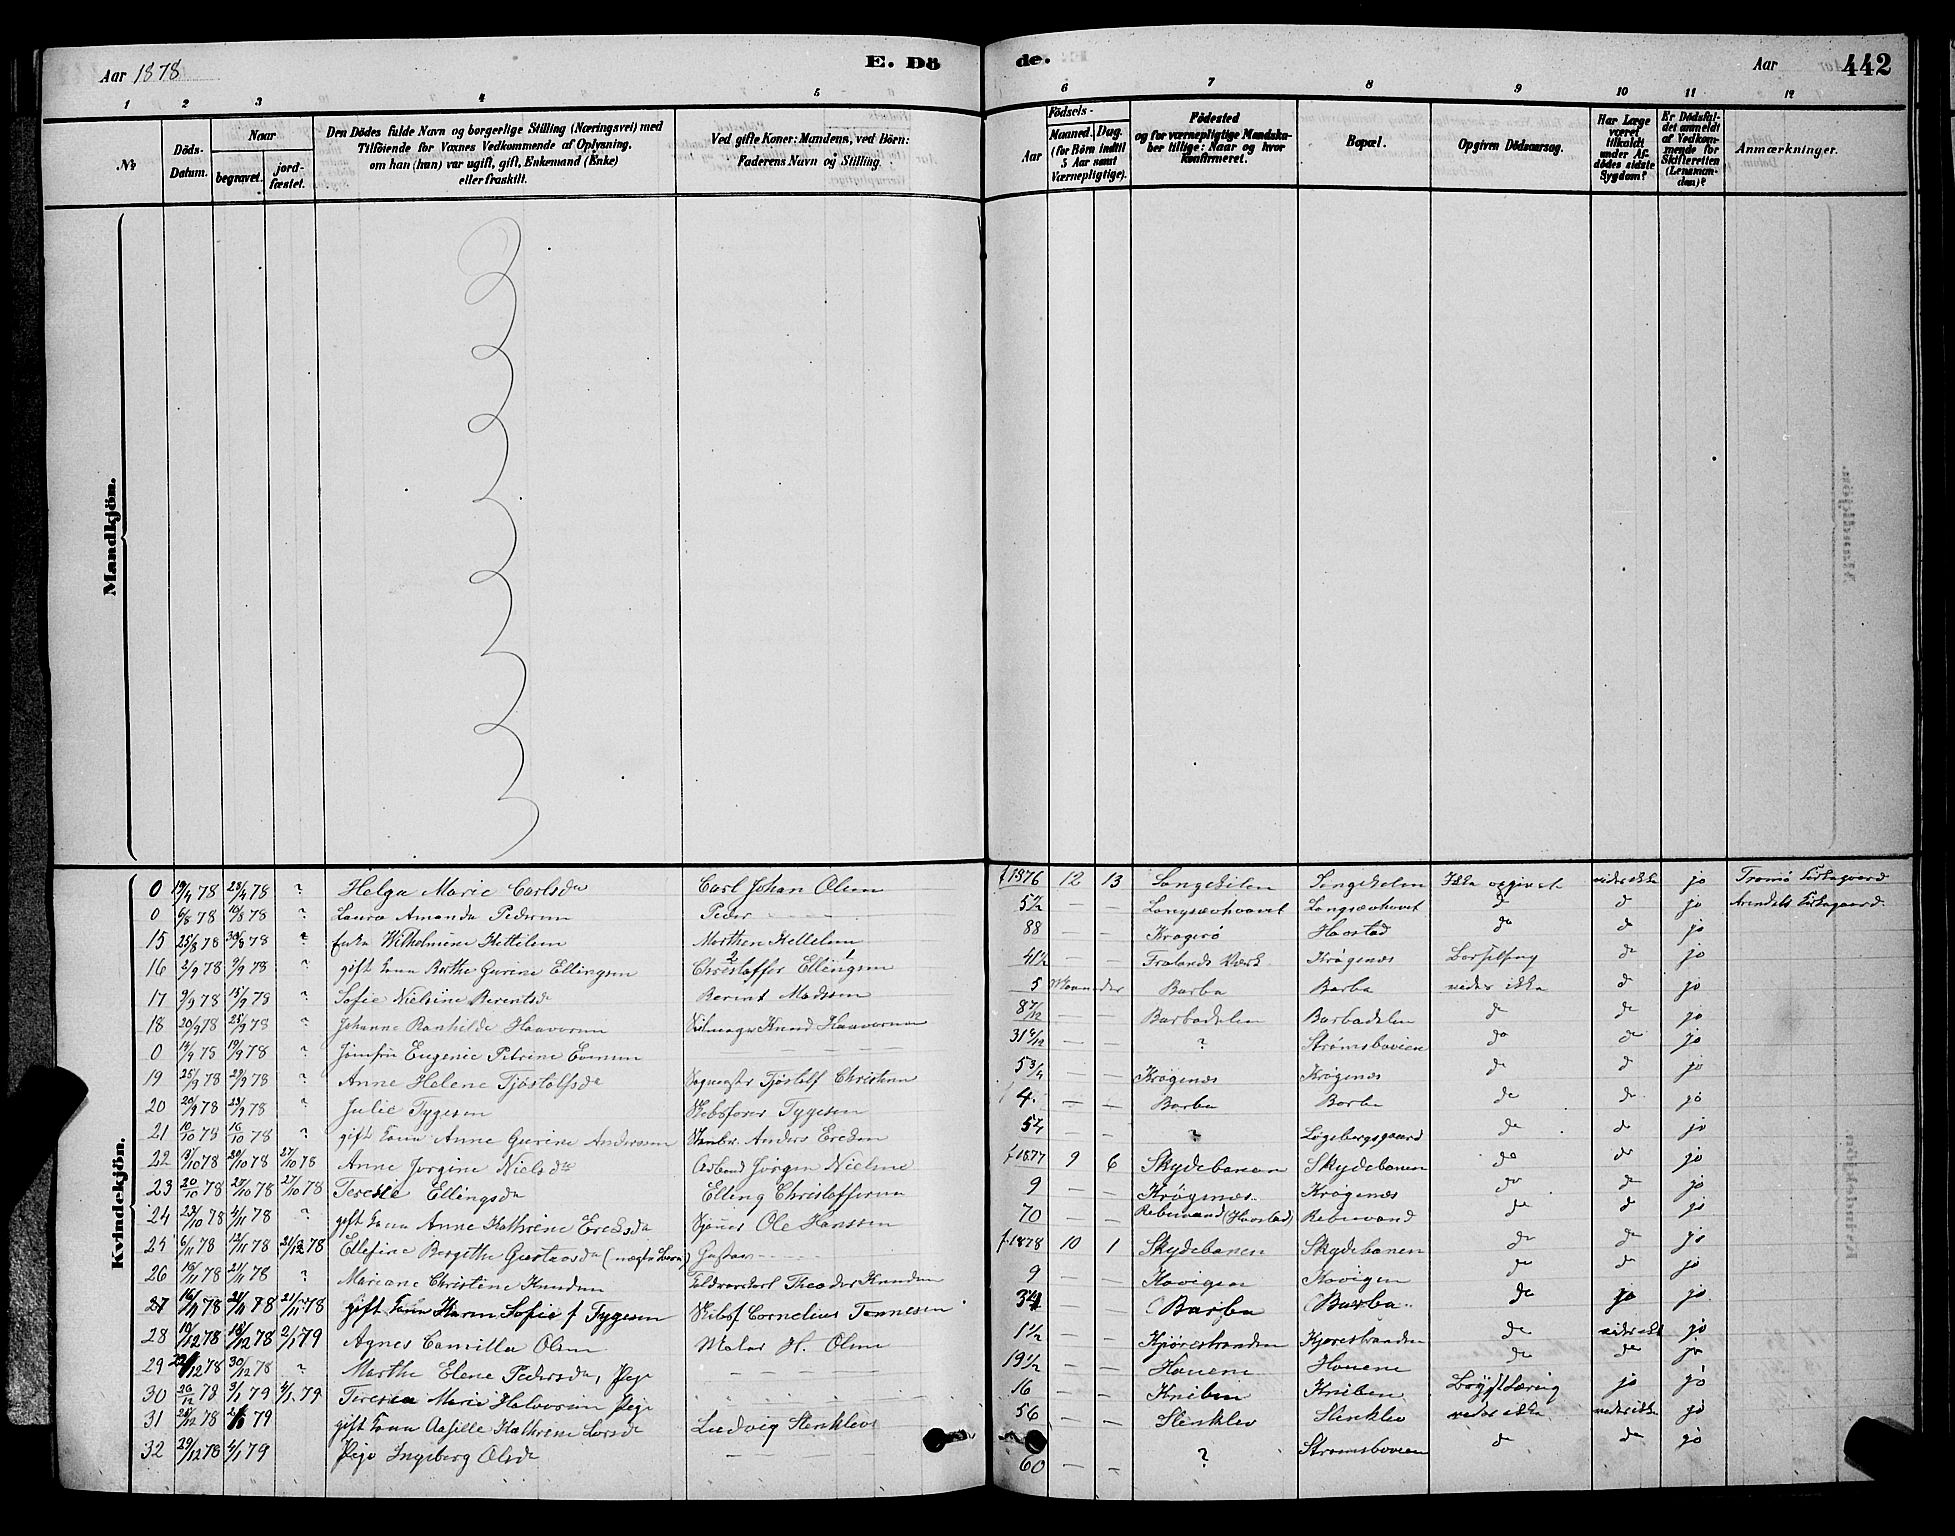 Aar 1878
E. Dö
de.
Aar
442
1 2 3 4 5 6 7 8 9 10 11 12
No
Döds-Datum.
Naar
begravet.
jord-fæstet.
Den Dödes fulde Navn og borgerlige Stilling (Næringsvei) med
Tilföiende for Voxnes Vedkommende af Oplysning,
om han (hun) var ugift, gift, Enkemand (Enke)
eller fraskilt.
Ved gifte Koner: Mandens, ved Börn:
Faderens Navn og Stilling.
Födsels-
Aar
Maaned. Dag.
(for Börn indtil
5 Aar samt
Værnepligtige).
Födested
og for værnepligtige Mandska-
ber tillige: Naar og hvor
konfirmeret.
Bopæl.
Opgiven Dödsaarsag.
Har Læge
været
tilkaldt
under Af-
dödes sidste
Sygdom?
Er Dödsfal-
det anmeldt
af Vedkom-
mende for
Skifteretten
(Lensman-
den)?
Anmærkninger.
Mandkjön.
Kvindekjön.
0 19/4 78 23/4 78 ? Helga Marie Carlsda Carl Johan Olsen f 1876 12 13 Songekilen Songekilen Ikke opgivet vides ikke jo Tromö Kirkegaard
0 6/8 78 10/8 78 ? Laura Amanda Pedersen Peder — — — Langsævhovet Langsævhovet do d jo Arendals Kirkegaard
15 25/8 78 30/8 78 ? Enke Wilhelmine Kettilsen Morthen Kettelsen 88 — — Kragerø Haastad do d jo
16 2/9 78 9/9 78 ? gift Kone Berthe Gurine Ellingsen Christoffer Ellingsen 41½ — — Frolands Værk Krøgenæs d jo
17 9/9 78 15/9 78 ? Sofie Nielsine Berentsda Berent Madssen 5 Maaneder Barbo Barbo vides ikke d jo
18 20/9 78 25/9 78 ? Johanne Ranhilde Haavorsen Knud Haavorsen 8 7/12 — — Barbodalen Barbodalen d d jo
0 14/9 78 19/9 78 ? Jomfru Eugenie Petrine Evensen — — 31 — — ? Strømsbovien do d jo
19 25/9 78 29/9 78 ? Anne Helene Tjøstolfsda Tjøstolf Christian 5 3/4 — — Krøgenæs Krøgenæs d d jo
20 20/9 78 23/9 78 ? Julie Tygesen Skibsfører Tygesen 4 — — Barbo Barbo do d jo
21 10/10 78 16/10 78 ? gift Kone Anne Gurine Andersen Anders — — ? Løgebergsgaard do d jo
22 78 78 27/10 78 Anne Jørgine Nielsda Jørgen Nielsen f 1877 9 6 Skydebanen Skydebanen do d jo
23 20/10 78 27/10 78 27/10 78 Terese Ellingsda Elling Christoffersen 9 — — Krøgenæs Krøgenæs do d jo
24 23/10 78 4/11 78 ? gift Kone Anne Kathrine Ericksda Ole Hanssen 70 — — (Haastad) do d jo
25 6/11 78 12/11 78 21/12 78 Ellefine Bergithe Gustavsda Gustav — — f 1878 10 1 Skydebanen Skydebanen do d jo
26 78 21/11 78 ? Mariane Christine Knudsen Theodor Knudsen 9 — — Havigen Havigen do d jo
27 16/11 78 21/11 78 21/11 78 gift Kone Karen Sofie f Tygesen Skibsf Cornelius Tønnesen 34 — — Barbo Barbo do jo jo
28 10/12 78 18/12 78 2/1 79 Agnes Camilla Olsen H. Olsen 1½ — — Kjørestranden Kjørestranden do vides ikke jo
29 78 30/12 78 ? Marthe Elene Pedersda, Pige — — 19½ — — Hauene Hauene do do jo
30 26/12 78 3/1 79 4/1 79 Teresia Marie Halvorsen Pige — — 16 — — Kniben Kniben Brysttæring jo jo
31 78 79 gift Kone Kathrine Larsda Ludvig Stenklev 56 — — Stenklev Stenklev vides ikke vides ikke jo
32 29/12 78 4/1 79 Pige Ingeborg Olsda — — 60 — — ? Strømsbovien d do jo